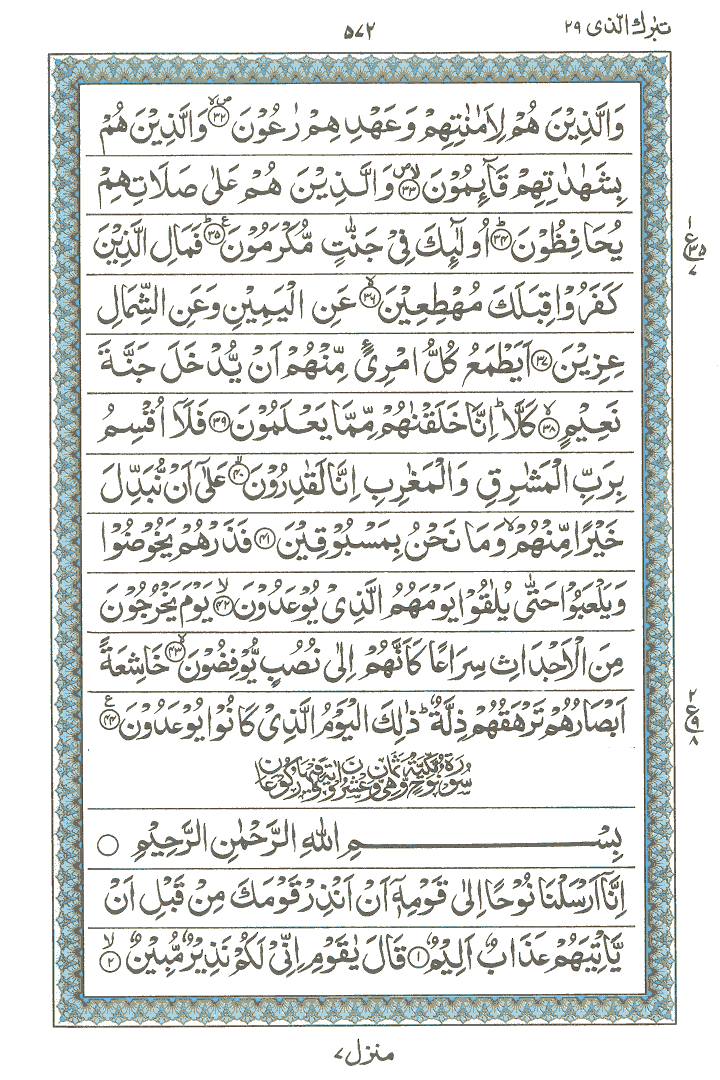 تبٰرك الّذی ۲۹
۵۷۲
وَالَّذِيْنَ هُمْ لِاَمٰنٰتِهِمْ وَعَهْدِهِمْ رٰعُوْنَ ۝۳۲ وَالَّذِيْنَ هُمْ
بِشَهٰدٰتِهِمْ قَآئِمُوْنَ ۝۳۳ وَالَّذِيْنَ هُمْ عَلٰى صَلَاتِهِمْ
يُحَافِظُوْنَ ۝۳۴ اُولٰٓئِكَ فِيْ جَنّٰتٍ مُّكْرَمُوْنَ ۝۳۵ فَمَالِ الَّذِيْنَ
كَفَرُوْا قِبَلَكَ مُهْطِعِيْنَ ۝۳۶ عَنِ الْيَمِيْنِ وَعَنِ الشِّمَالِ
عِزِيْنَ ۝۳۷ اَيَطْمَعُ كُلُّ امْرِئٍ مِّنْهُمْ اَنْ يُّدْخَلَ جَنَّةَ
نَعِيْمٍ ۝۳۸ كَلَّا ؕ اِنَّا خَلَقْنٰهُمْ مِّمَّا يَعْلَمُوْنَ ۝۳۹ فَلَاۤ اُقْسِمُ
بِرَبِّ الْمَشٰرِقِ وَالْمَغٰرِبِ اِنَّا لَقٰدِرُوْنَ ۝۴۰ عَلٰۤى اَنْ نُّبَدِّلَ
خَيْرًا مِّنْهُمْ ۙ وَمَا نَحْنُ بِمَسْبُوْقِيْنَ ۝۴۱ فَذَرْهُمْ يَخُوْضُوْا
وَيَلْعَبُوْا حَتّٰى يُلٰقُوْا يَوْمَهُمُ الَّذِيْ يُوْعَدُوْنَ ۝۴۲ يَوْمَ يَخْرُجُوْنَ
مِنَ الْاَجْدَاثِ سِرَاعًا كَاَنَّهُمْ اِلٰى نُصُبٍ يُّوْفِضُوْنَ ۝۴۳ خَاشِعَةً
اَبْصَارُهُمْ تَرْهَقُهُمْ ذِلَّةٌ ؕ ذٰلِكَ الْيَوْمُ الَّذِيْ كَانُوْا يُوْعَدُوْنَ ۝۴۴
سُوْرَةُ نُوْحٍ مَّكِّيَّةٌ وَّهِيَ ثَمَانٍ وَّعِشْرُوْنَ اٰيَةً وَّفِيْهَا رُكُوْعَانِ
بِسْمِ اللّٰهِ الرَّحْمٰنِ الرَّحِيْمِ
اِنَّاۤ اَرْسَلْنَا نُوْحًا اِلٰى قَوْمِهٖۤ اَنْ اَنْذِرْ قَوْمَكَ مِنْ قَبْلِ اَنْ
يَّاْتِيَهُمْ عَذَابٌ اَلِيْمٌ ۝۱ قَالَ يٰقَوْمِ اِنِّيْ لَكُمْ نَذِيْرٌ مُّبِيْنٌ ۝۲
۱
ع ۳۵
۷
۲
ع ۹
۸
منزل ۷